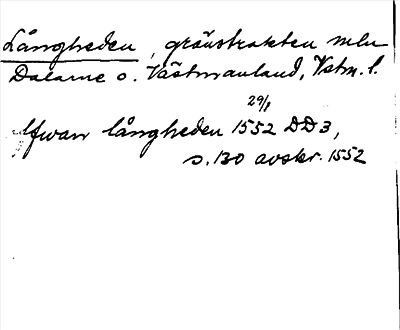 Långheden, gränstrakten mln
Dalarne o. Västmanland, Vstm. l.
29/1
Ofwan långheden 1552 DD3,
s. 130 avskr. 1552